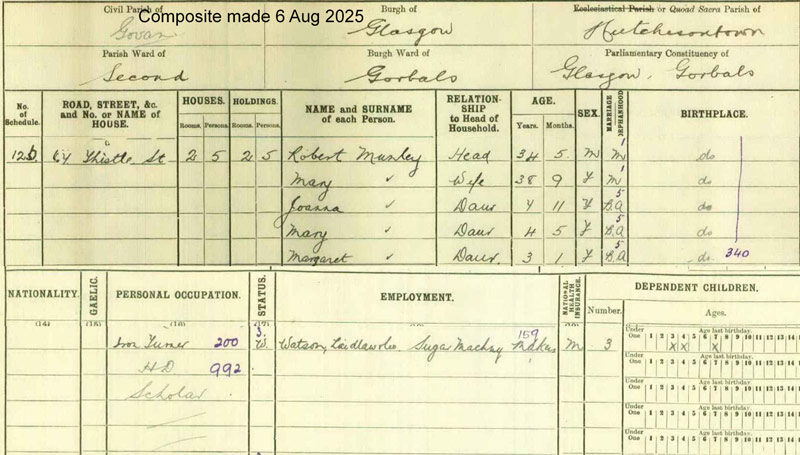 Composite made 6 Aug 2025
Civil Parish of Burgh of Ecclesiastical Parish or Quoad Sacra Parish of
Govan Glasgow Hutchesontown
Parish Ward of Burgh Ward of Parliamentary Constituency of
Second Gorbals Glasgow, Gorbals
No. of Schedule. ROAD, STREET, &c. and No. or NAME of HOUSE. HOUSES: Rooms. Persons. HOLDINGS: Rooms. Persons. NAME and SURNAME of each Person. RELATION-SHIP to Head of Household. AGE. Years. Months. SEX. MARRIAGE ORPHANHOOD BIRTHPLACE.
Thistle St 2 5 2 5 Robert Munley Head 34 5 M M 1 do
Mary ✓ Wife 38 9 F M 1 do
Joanna ✓ Daur 7 11 F B.A 5 do
Mary ✓ Daur 4 5 F B.A 5 do
Margaret ✓ Daur 3 1 F B.A 5 do 340
NATIONALITY. GAELIC. PERSONAL OCCUPATION. STATUS. EMPLOYMENT. NATIONAL HEALTH INSURANCE. DEPENDENT CHILDREN.
Number. Ages.
(14) (15) (16) (17)
Iron Turner 200 W. Watson, Laidlaw & Co. Sugar Machny Makers 159 M 3 Under One Age last birthday. 1 2 3 4 5 6 7 8 9 10 11 12 13 14 x x x
H.D 992 Under One Age last birthday. 1 2 3 4 5 6 7 8 9 10 11 12 13 14
Scholar Under One Age last birthday. 1 2 3 4 5 6 7 8 9 10 11 12 13 14
Under One Age last birthday. 1 2 3 4 5 6 7 8 9 10 11 12 13 14
Under One Age last birthday. 1 2 3 4 5 6 7 8 9 10 11 12 13 14